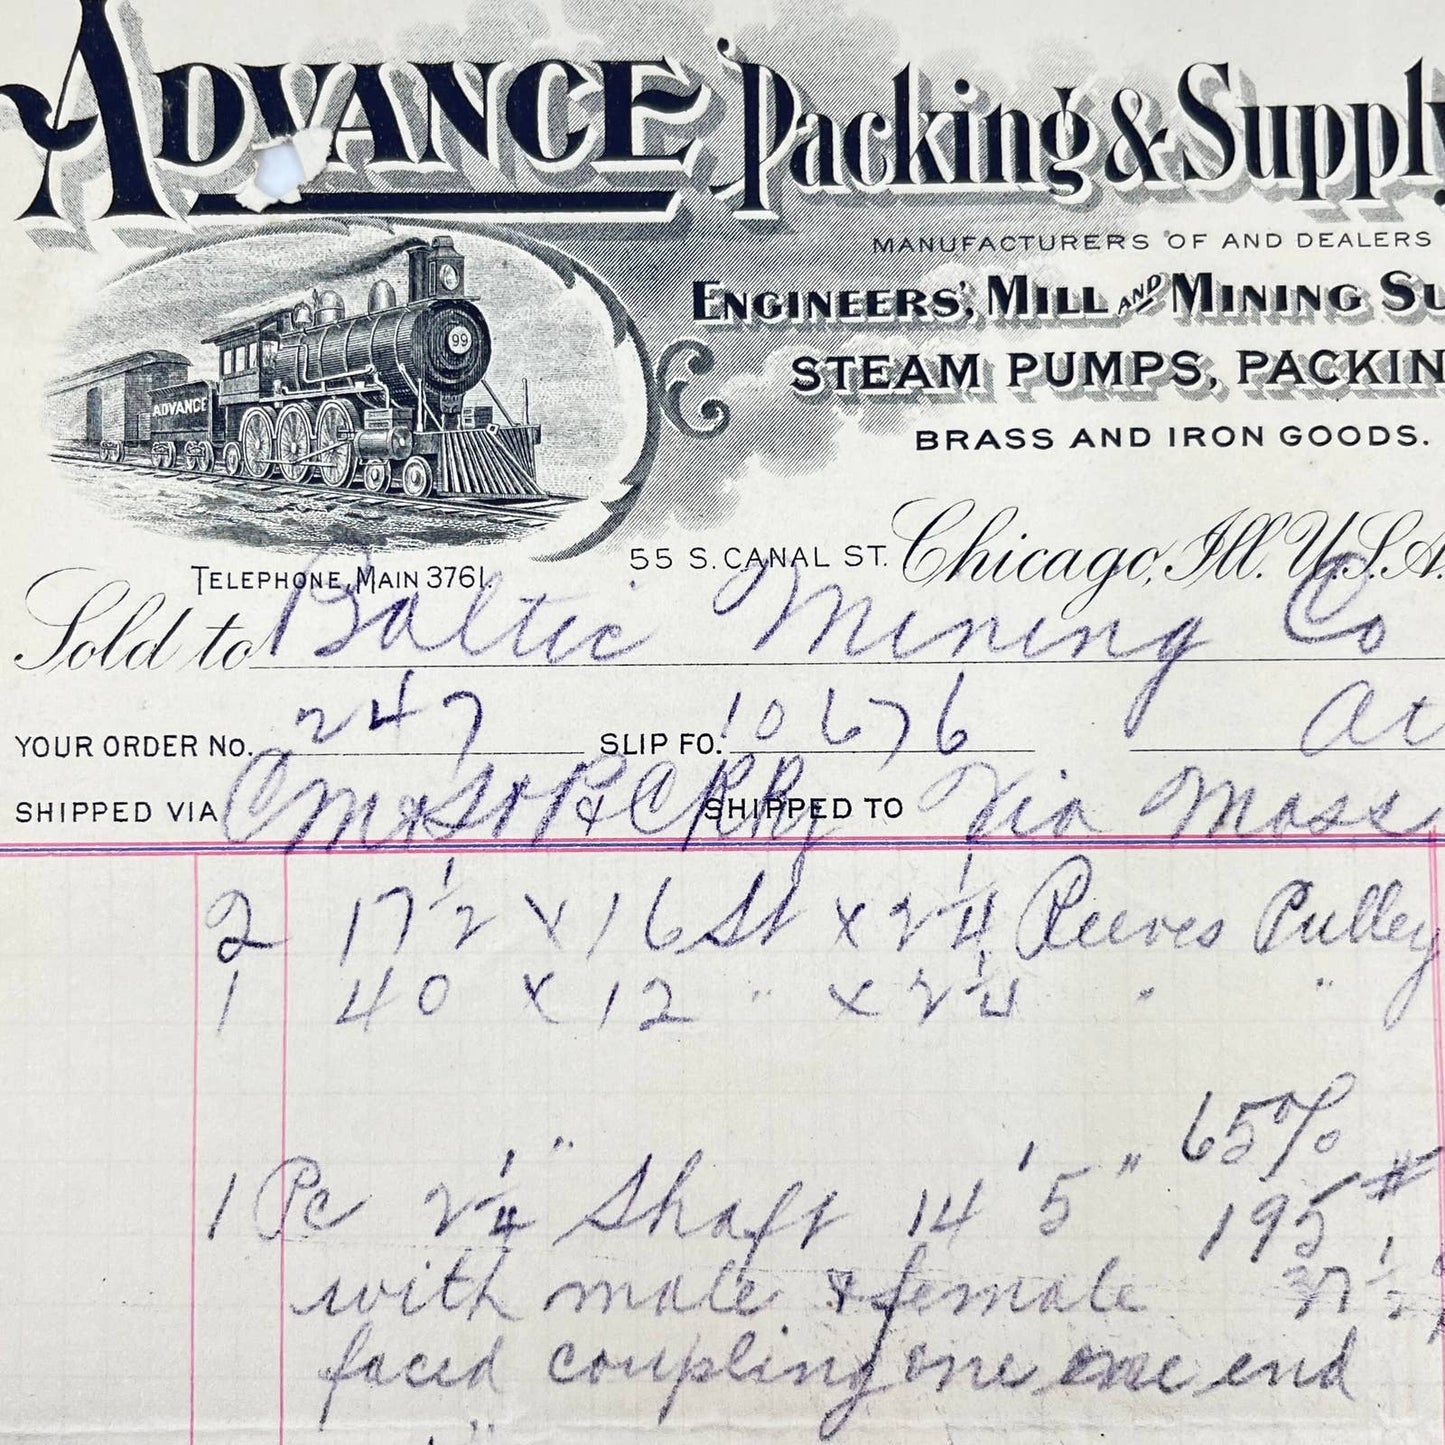 ADVANCE Packing & Supply
MANUFACTURERS OF AND DEALERS
ENGINEERS', MILL AND MINING SU
STEAM PUMPS, PACKIN
BRASS AND IRON GOODS.
99
ADVANCE
TELEPHONE, MAIN 3761.
55 S. CANAL ST. Chicago, Ill. U.S.A.
Sold to Baltic Mining Co
YOUR ORDER NO. 247 SLIP FO. 10676 At
SHIPPED VIA CM & St P & C RRy SHIPPED TO Via Mass
2 17 1/2 x 16 St x 2 1/4 Reeves Pulley
1 40 x 12 " x 2 1/4 " "
65%
1 Pc 2 1/4" Shaft 14' 5" 195 #
with male & female 37 1/2
faced coupling one end